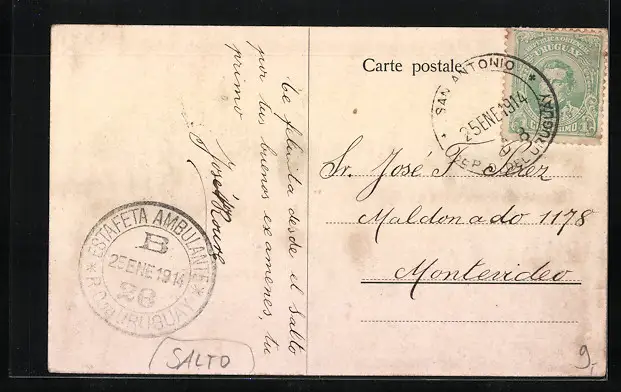 Carte postale
REPUBLICA ORIENTAL
URUGUAY
SAN ANTONIO
25 ENE 1914
REP. O. DEL URUGUAY
Sr. José F. Pérez
Maldonado 1178
Montevideo
Te felicita desde el Salto
por tus buenos examenes, tu
primo
José
ESTAFETA AMBULANTE
B
25 ENE 1914
26
R. O. URUGUAY
SALTO
9,-